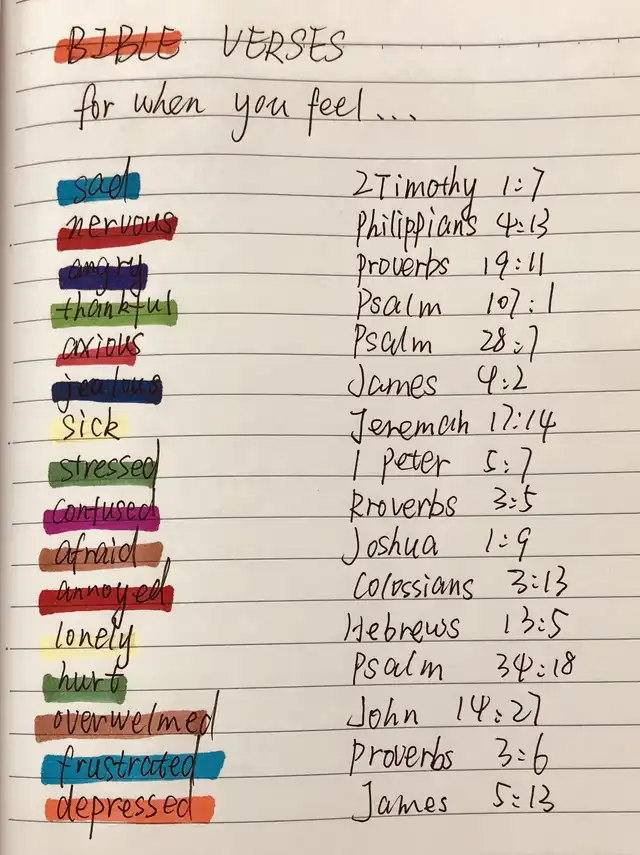 BIBLE VERSES
for when you feel...
sad 2Timothy 1:7
nervous Philippians 4:13
angry Proverbs 19:11
thankful Psalm 107:1
axious Psalm 28:7
jealous James 4:2
sick Jeremah 17:14
stressed 1 peter 5:7
confused Rroverbs 3:5
afraid Joshua 1:9
annoyed Colossians 3:13
lonely Hebrews 13:5
hurt Psalm 34:18
overwelmed John 14:27
frustrated Proverbs 3:6
depressed James 5:13